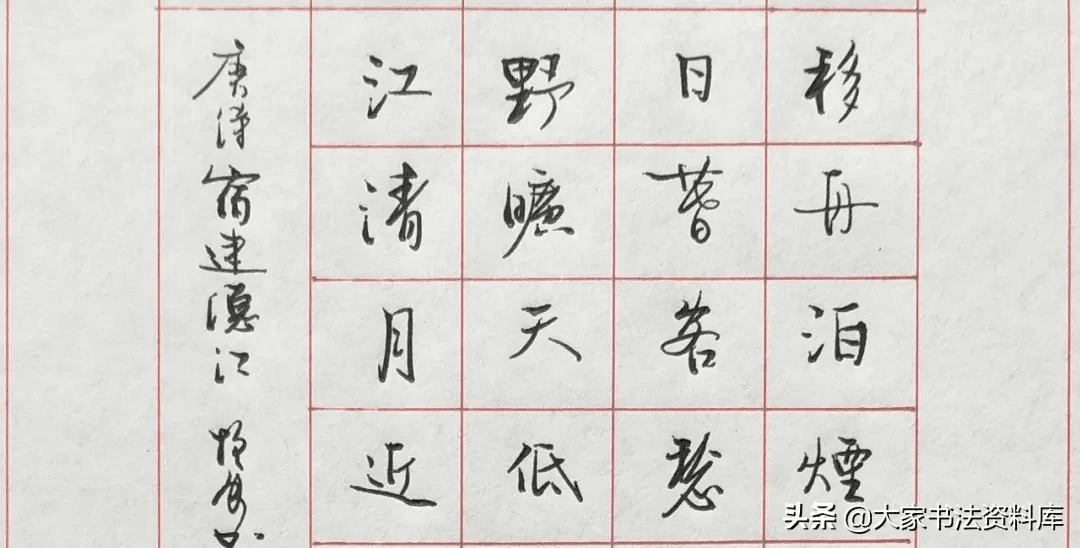 移舟泊煙
日暮客愁
野曠天低
江清月近
唐诗宿建德江
头条 @大家书法资料库